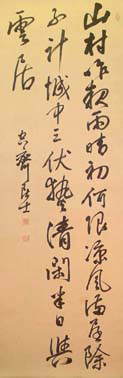 山村作報雨晴初何限涼風滿屋除
不計城中三伏熱清閑半日與
雲居
居士